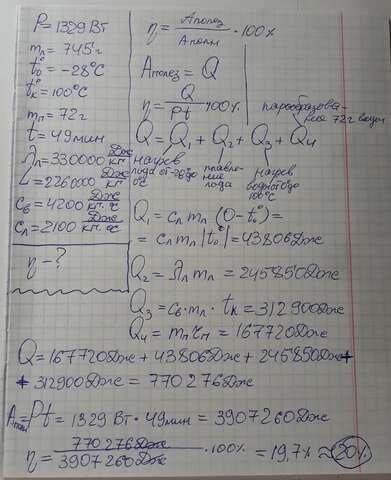 P = 1329 Вт
mл = 745г
t₀° = -28°C
tк° = 100°C
mп = 72г
t = 49мин
λл = 330000 Дж/кг
L = 2260000 Дж/кг
cв = 4200 Дж/кг·°C
cл = 2100 Дж/кг·°C
η - ?
η = Aполез/Aполн · 100%
Aполез = Q
η = Q/Pt · 100%
парообразование 72г воды
Q = Q₁ + Q₂ + Q₃ + Q₄
нагрев льда от -28 до 0°C
плавление льда
нагрев воды от 0 до 100°C
Q₁ = cл mл (0 - t₀°) =
= cл mл |t₀°| = 43806Дж
Q₂ = λл mл = 245850Дж
Q₃ = cв · mл · tк = 312900Дж
Q₄ = mп rп = 167720Дж
Q = 167720Дж + 43806Дж + 245850Дж +
+ 312900Дж = 770276Дж
Aполн = Pt = 1329 Вт · 49мин = 3907260Дж
η = 770276Дж/3907260Дж · 100% = 19,7% ≈ 20%